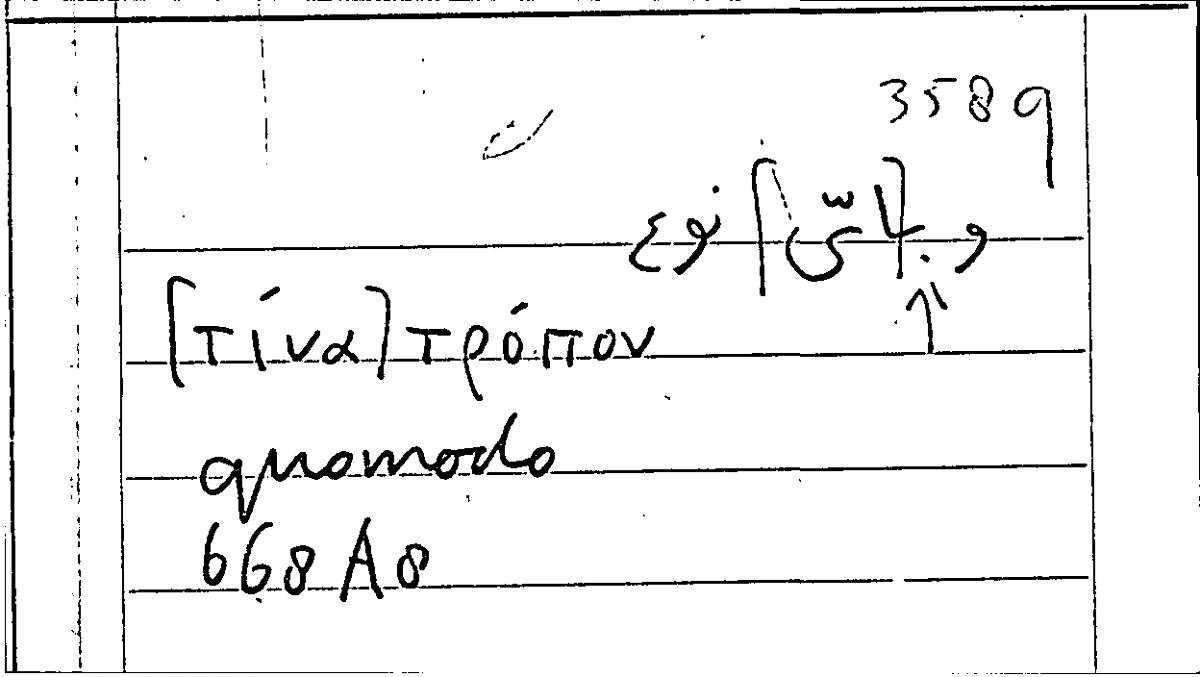 3589
وب[اىّ] نوع
↑
[τίνα] τρόπον
quomodo
668 A8